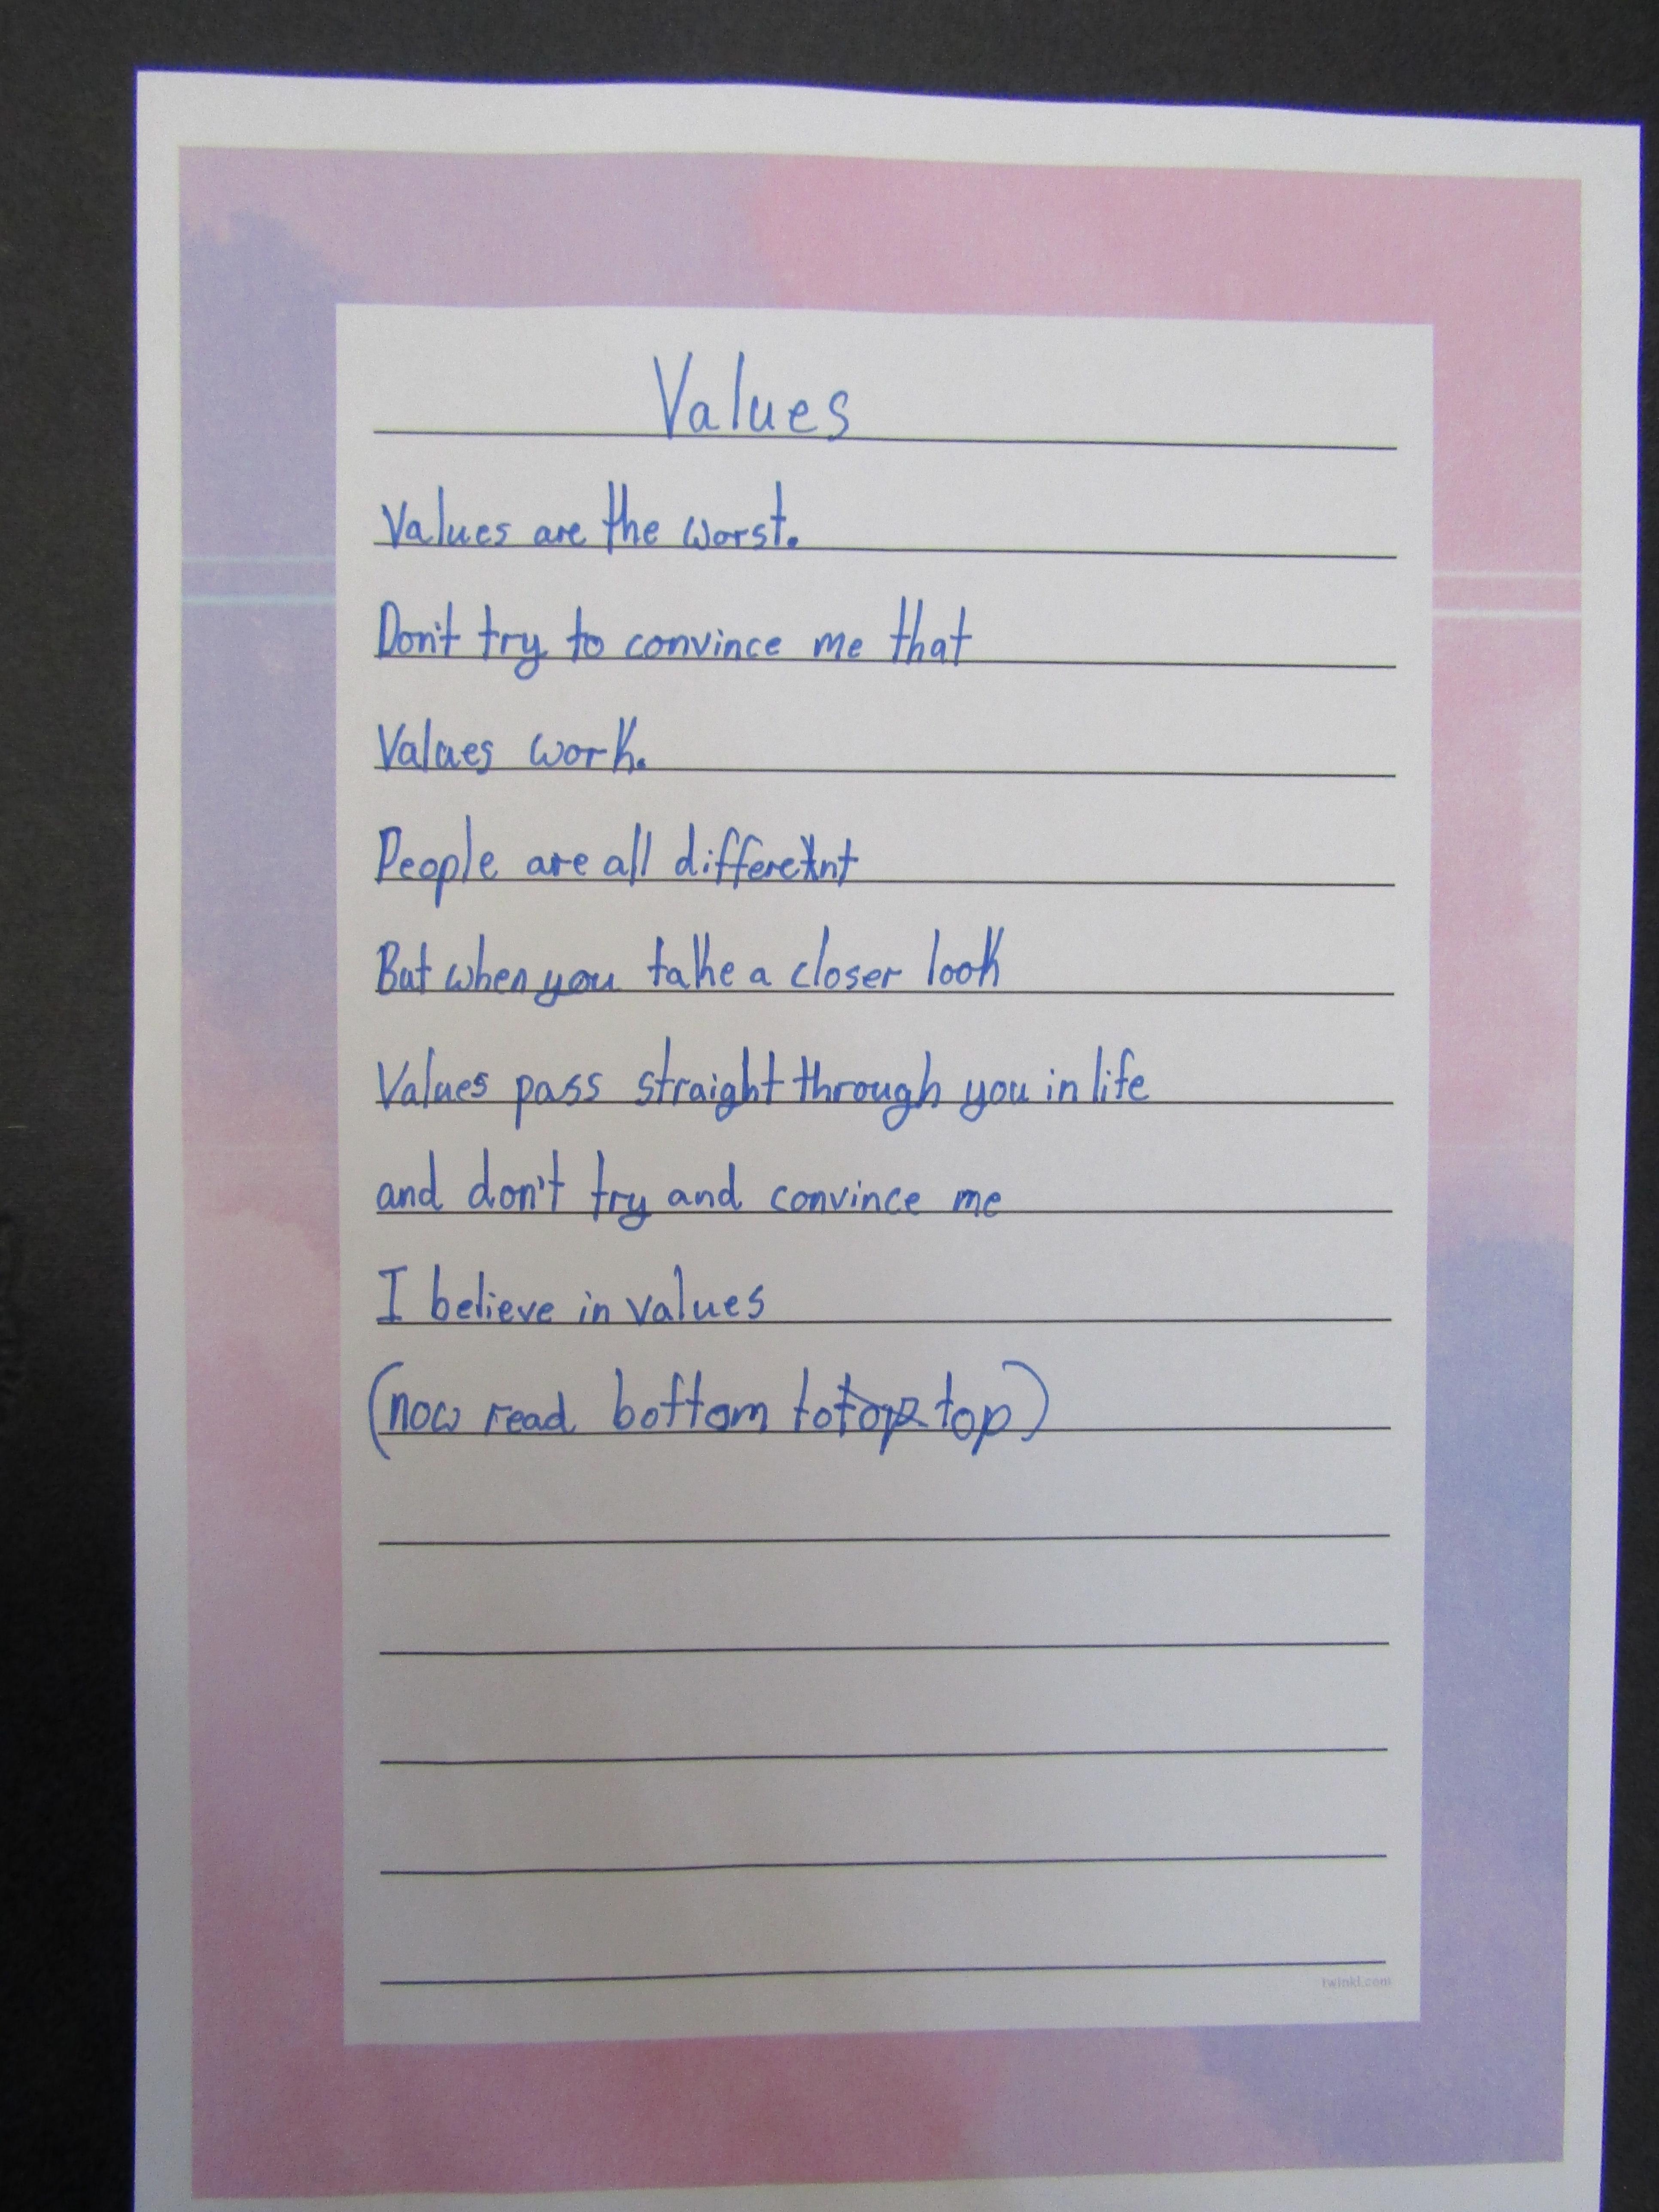 Values
Values are the worst.
Don't try to convince me that
Values work.
People are all different
But when you take a closer look
Values pass straight through you in life
and don't try and convince me
I believe in values
(now read bottom to top)
twinkl.com